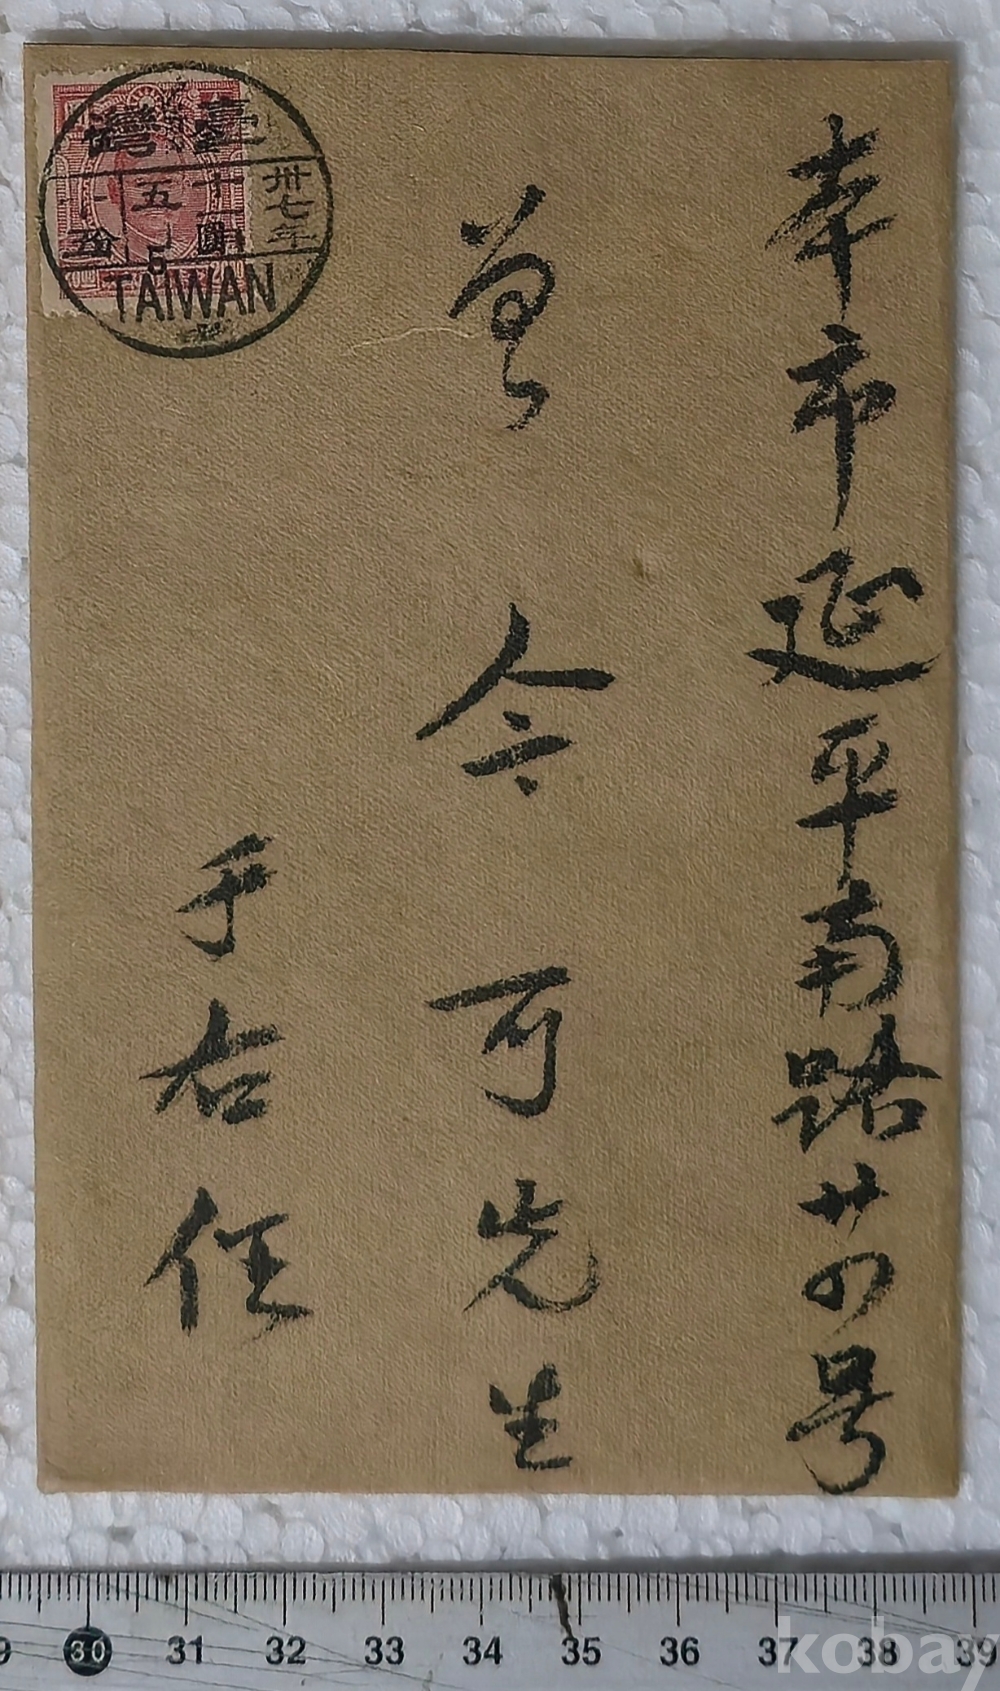 本市延平南路廿四号
曾今可先生
于右任
臺灣
卅七年
十一
五
5
TAIWAN
30 31 32 33 34 35 36 37 38 39
kobay